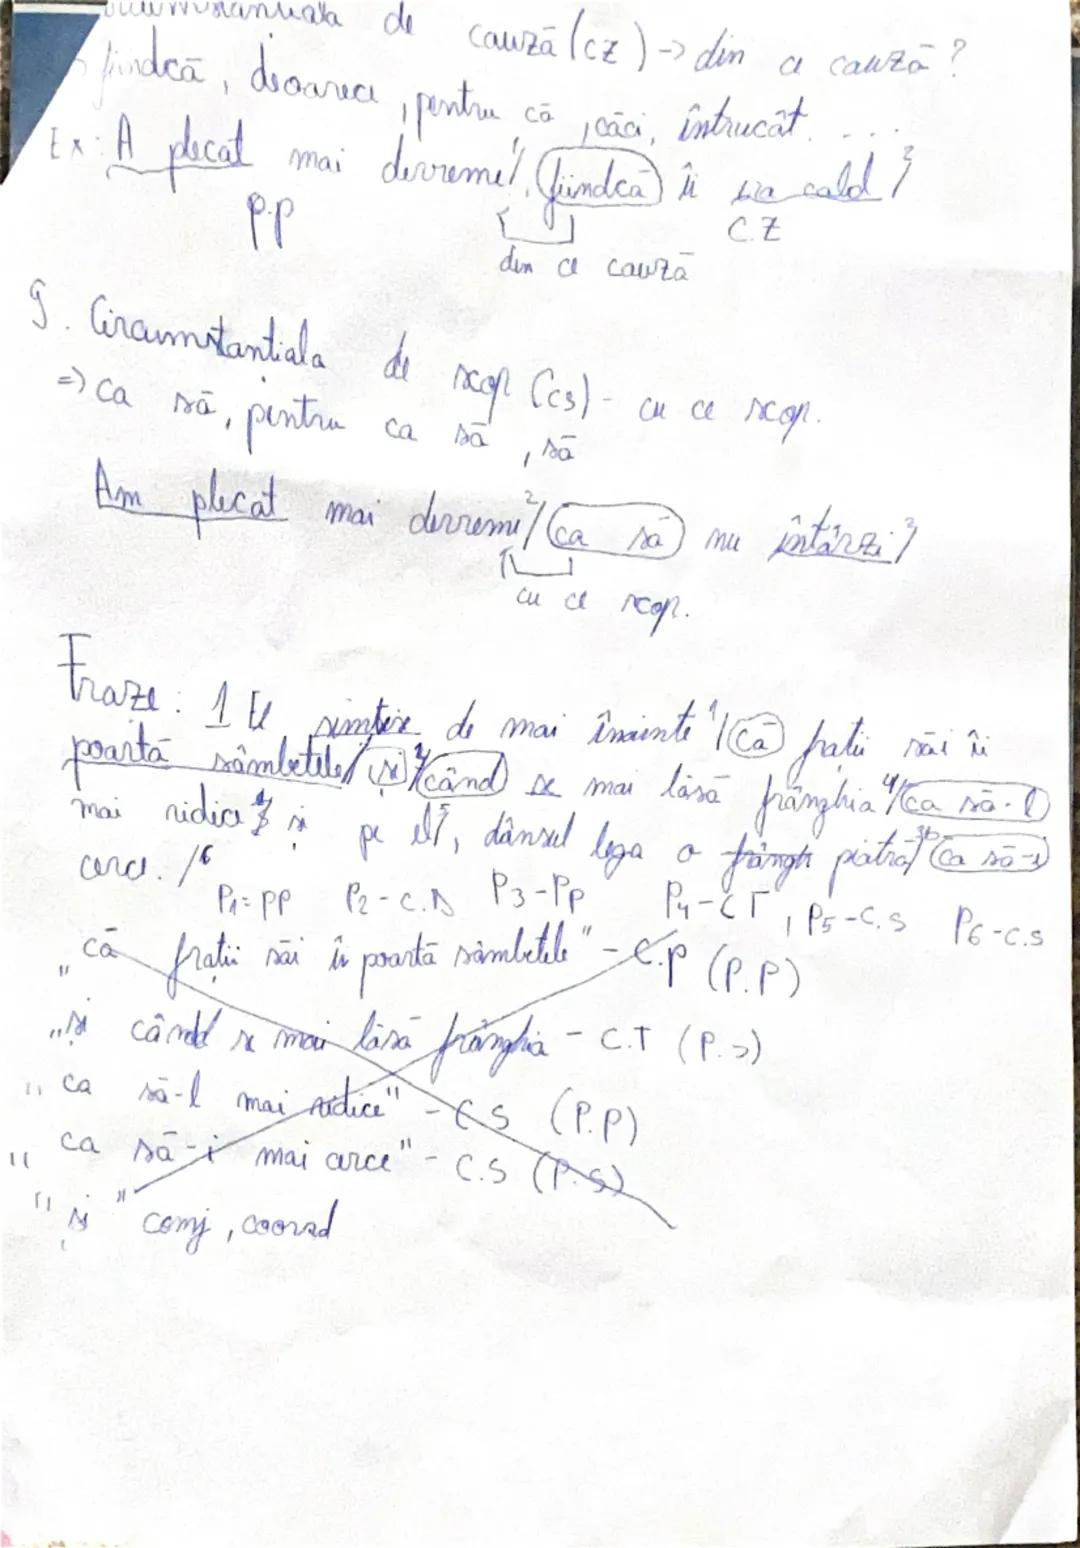 de cauză (cz) -> din ce cauză?
fiindcă, deoarece, pentru că, căci, întrucât. ...
Ex: A plecat mai devreme1/, (fiindcă) îi era cald2/
P.P C.Z
din ce cauză
9. Circumstantiala de scop (cs) - cu ce scop.
=> ca să, pentru ca să, să
Am plecat mai devreme/ (ca să) nu întârzi2/
cu ce scop.
Fraze: 1 El simtise de mai înainte1/ (că) fratii săi îi
poartă sâmbetele/ (și) 3/ (când) se mai lăsă frânghia4/ (ca să-l
mai ridice și pe el5/, dânsul lega o piatră3b/ (ca să-i
cerce. /6
P1=PP P2-C.D P3-PP P4-CT, P5-C.S P6-C.S
„că fratii săi îi poartă sâmbetele" - C.P (P.P)
„și când se mai lăsă frânghia - C.T (P.S)
„ca să-l mai ridice" - C.S (P.P)
„ca să-i mai arce" - C.S (P.S)
„și" conj, coord